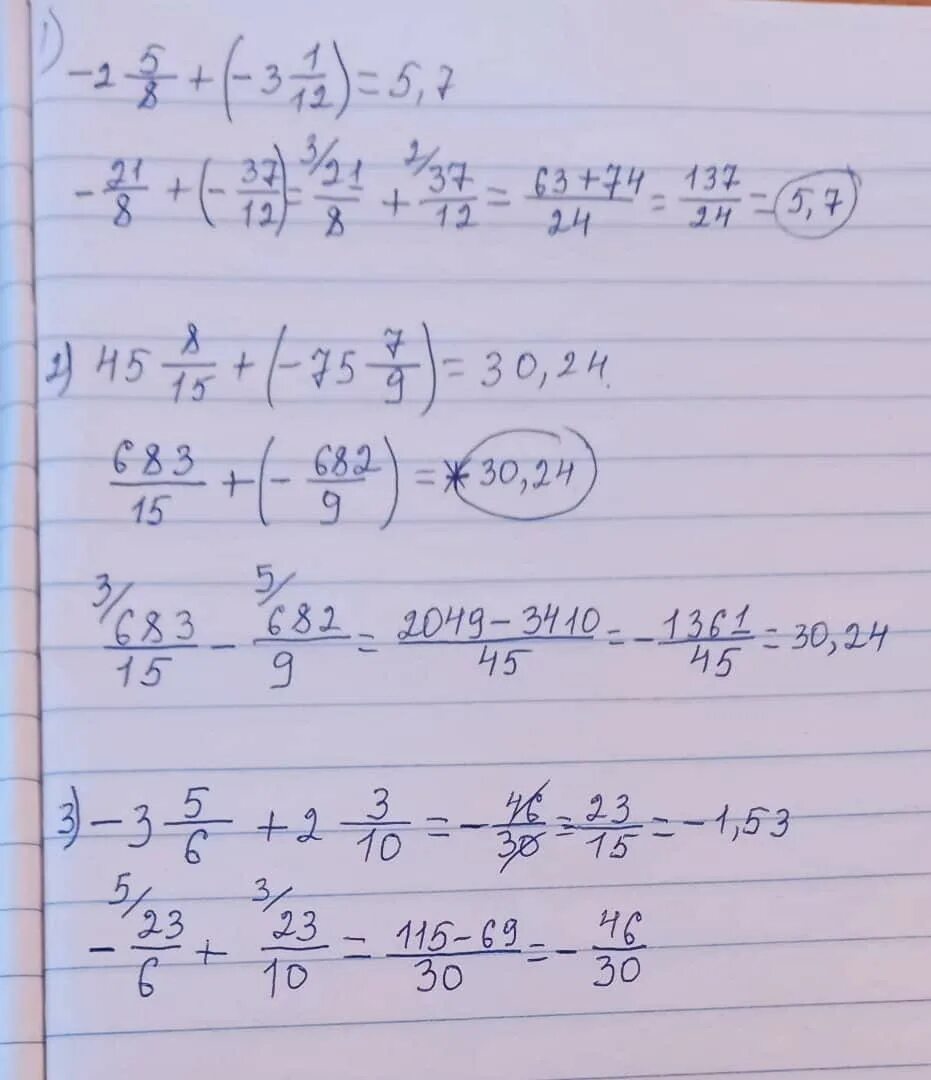 1)
-2 5/8 + (-3 1/12) = 5,7
-21/8 + (-37/12) = 3/ 21/8 + 2/ 37/12 = 63+74/24 = 137/24 = 5,7
2) 45 8/15 + (-75 7/9) = 30,24
683/15 + (-682/9) = 30,24
3/ 683/15 - 5/ 682/9 = 2049-3410/45 = -1361/45 = 30,24
3) -3 5/6 + 2 3/10 = -46/30 = 23/15 = -1,53
-5/ 23/6 + 3/ 23/10 = 115-69/30 = -46/30